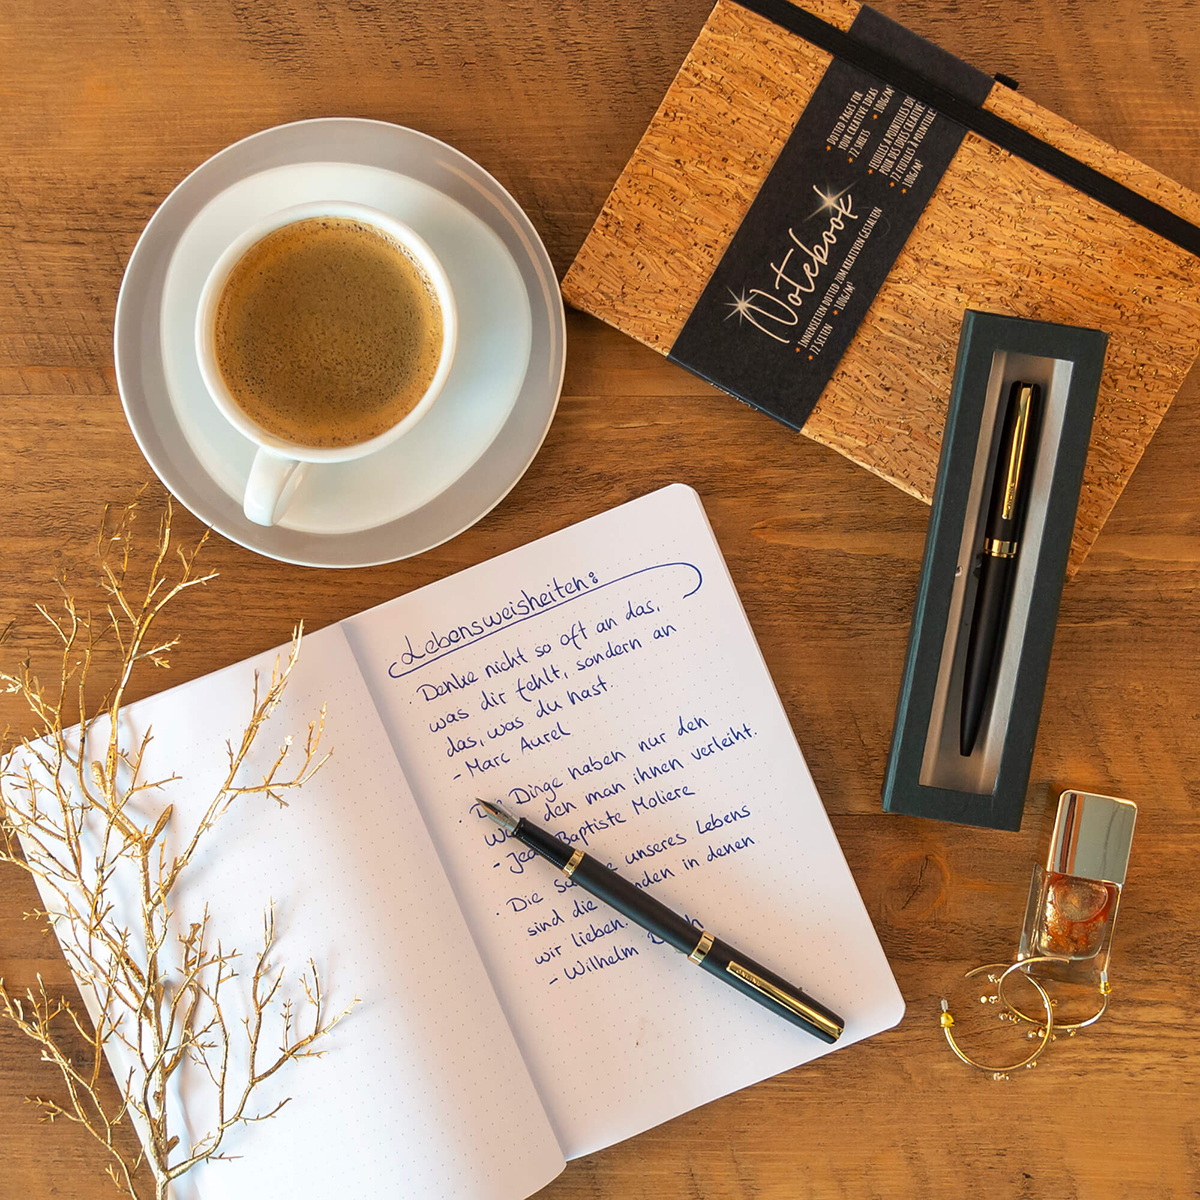 Notebook
DOTTED PAGES FOR
YOUR CREATIVE IDEAS
72 SHEETS
100G/M²
FEUILLES À POINTILLÉS
POUR DES IDÉES CREATIVE
72 FEUILLES À POINTILLÉ
100G/M²
INNENSEITEN DOTTED ZUM KREATIVEN GESTALTEN
72 SEITEN
100G/M²
Lebensweisheiten:
· Denke nicht so oft an das,
was dir fehlt, sondern an
das, was du hast.
- Marc Aurel
· Dinge haben nur den
den man ihnen verleiht.
- Baptiste Moliere
· Die unseres Lebens
sind die in denen
wir lieben.
- Wilhelm